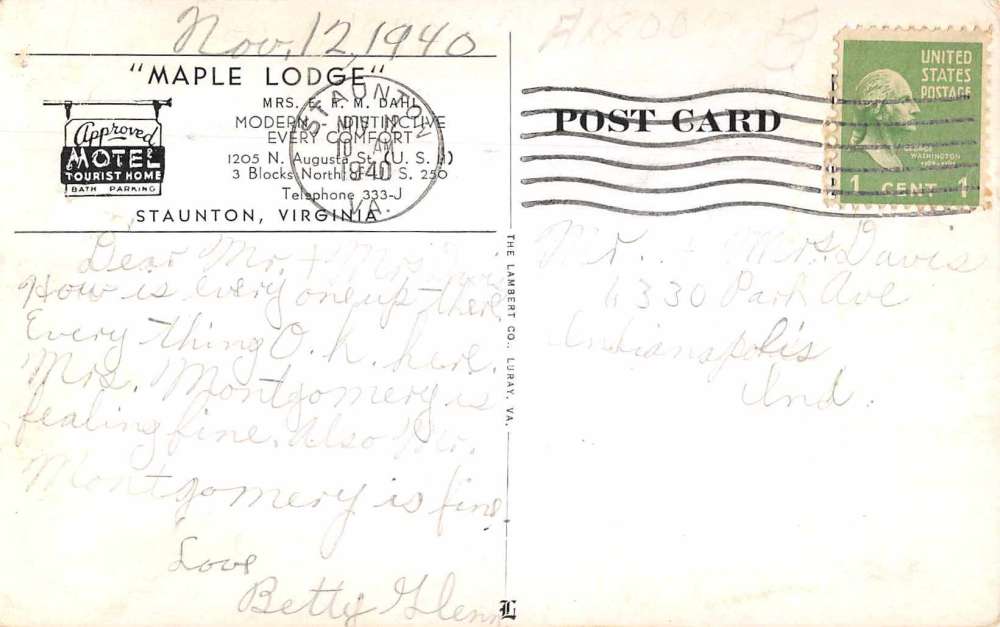 Nov. 12, 1940
"MAPLE LODGE"
MRS. E. E. M. DAHL
MODERN - DISTINCTIVE
EVERY COMFORT
1205 N. Augusta St. (U. S. 11)
3 Blocks North of U. S. 250
Telephone 333-J
STAUNTON, VIRGINIA
Approved
MOTEL
TOURIST HOME
BATH PARKING
STAUNTON
NOV 12
10 AM
1940
VA.
Dear Mr. + Mrs. Davis
How is every one up there.
Every thing O.k. here.
Mrs. Montgomery is
fealing fine. Also Mr.
Montgomery is fine
Love
Betty Glenn
THE LAMBERT CO., LURAY, VA.
L
POST CARD
UNITED
STATES
POSTAGE
GEORGE
WASHINGTON
1 CENT 1
Mr. + Mrs. Davis
4330 Park Ave
Indianapolis
Ind.